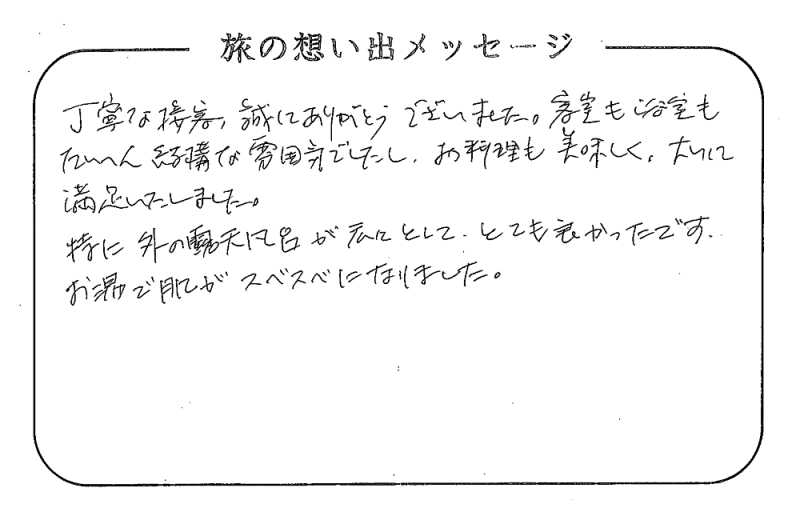 旅の想い出メッセージ
丁寧な接客、誠にありがとうございました。客室も浴室も
たいへん結構な雰囲気でしたし、お料理も美味しく、大いに
満足いたしました。
特に外の露天風呂が広々として、とても良かったです。
お湯で肌がスベスベになりました。